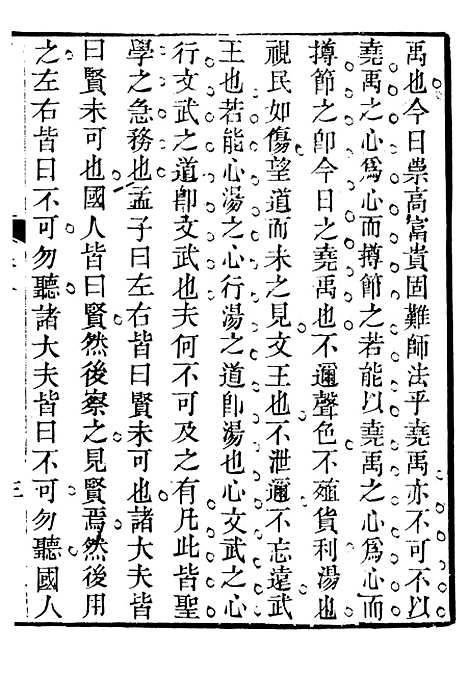 禹也今日崇高富貴固難師法乎堯禹亦不可不以
堯禹之心爲心而撙節之若能以堯禹之心爲心而
撙節之卽今日之堯禹也不邇聲色不殖貨利湯也
視民如傷望道而未之見文王也不泄邇不忘遠武
王也若能心湯之心行湯之道卽湯也心文武之心
行文武之道卽文武也夫何不可及之有凡此皆聖
學之急務也孟子曰左右皆曰賢未可也諸大夫皆
曰賢未可也國人皆曰賢然後察之見賢焉然後用
之左右皆曰不可勿聽諸大夫皆曰不可勿聽國人
三